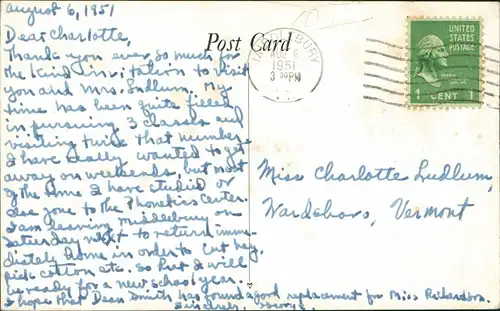 August 6, 1951
Dear Charlotte,
Thank you ever so much for
the kind invitation to visit
you and Mrs. Ludlum. My
time has been quite filled
in pursuing 3 classes and
visiting twice that number.
I have really wanted to get
away on weekends, but most
of the time I have studied or
else gone to the Phonetics Center.
I am leaving Middlebury on
Saturday next to return imme-
diately home in order to cut hay,
pick cotton etc. so that I will
be ready for a new school year.
I hope that Dean Smith has found a good replacement for Miss Richardson.
Sincerely, George
Post Card
MIDDLEBURY
AUG 6
1951
3 30 PM
UNITED
STATES
POSTAGE
1 CENT 1
Miss Charlotte Ludlum,
Wardsboro, Vermont